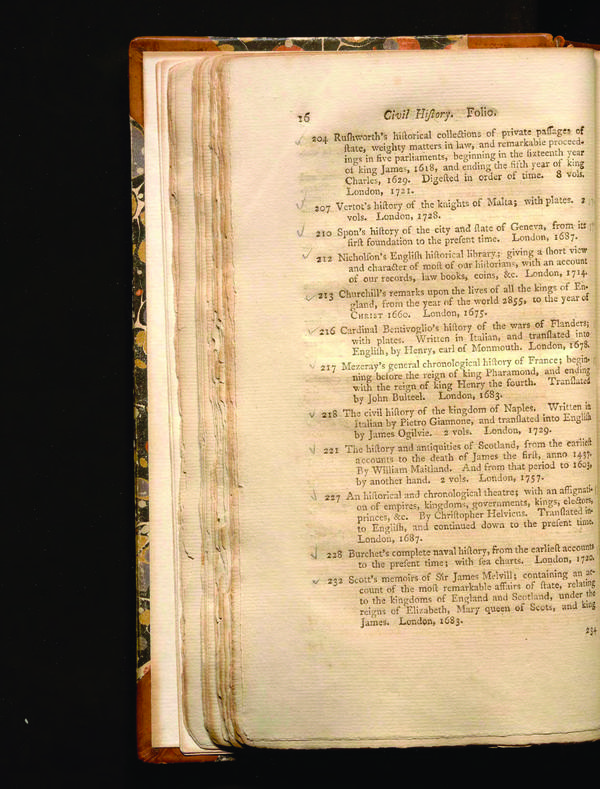 16 Civil Hiſtory. Folio.
204 Ruſhworth's hiſtorical collections of private paſſages of
ſtate, weighty matters in law, and remarkable proceed-
ings in five parliaments, beginning in the ſixteenth year
of king James, 1618, and ending the fifth year of king
Charles, 1629. Digeſted in order of time. 8 vols.
London, 1721.
207 Vertot's hiſtory of the knights of Malta; with plates. 2
vols. London, 1728.
210 Spon's hiſtory of the city and ſtate of Geneva, from its
firſt foundation to the preſent time. London, 1687.
212 Nicholſon's Engliſh hiſtorical library; giving a ſhort view
and character of moſt of our hiſtorians, with an account
of our records, law books, coins, &c. London, 1714.
213 Churchill's remarks upon the lives of all the kings of En-
gland, from the year of the world 2855, to the year of
CHRIST 1660. London, 1675.
216 Cardinal Bentivoglio's hiſtory of the wars of Flanders;
with plates. Written in Italian, and tranſlated into
Engliſh, by Henry, earl of Monmouth. London, 1678.
217 Mezeray's general chronological hiſtory of France; begin-
ning before the reign of king Pharamond, and ending
with the reign of king Henry the fourth. Tranſlated
by John Bulteel. London, 1683.
218 The civil hiſtory of the kingdom of Naples. Written in
Italian by Pietro Giannone, and tranſlated into Engliſh
by James Ogilvie. 2 vols. London, 1729.
221 The hiſtory and antiquities of Scotland, from the earlieſt
accounts to the death of James the firſt, anno 1437.
By William Maitland. And from that period to 1603,
by another hand. 2 vols. London, 1757.
227 An hiſtorical and chronological theatre; with an aſſignati-
on of empires, kingdoms, governments, kings, electors,
princes, &c. By Chriſtopher Helvicus. Tranſlated in-
to Engliſh, and continued down to the preſent time.
London, 1687.
228 Burchet's complete naval hiſtory, from the earlieſt accounts
to the preſent time; with ſea charts. London, 1720.
232 Scott's memoirs of Sir James Melvill; containing an ac-
count of the moſt remarkable affairs of ſtate, relating
to the kingdoms of England and Scotland, under the
reigns of Elizabeth, Mary queen of Scots, and king
James. London, 1683.
234